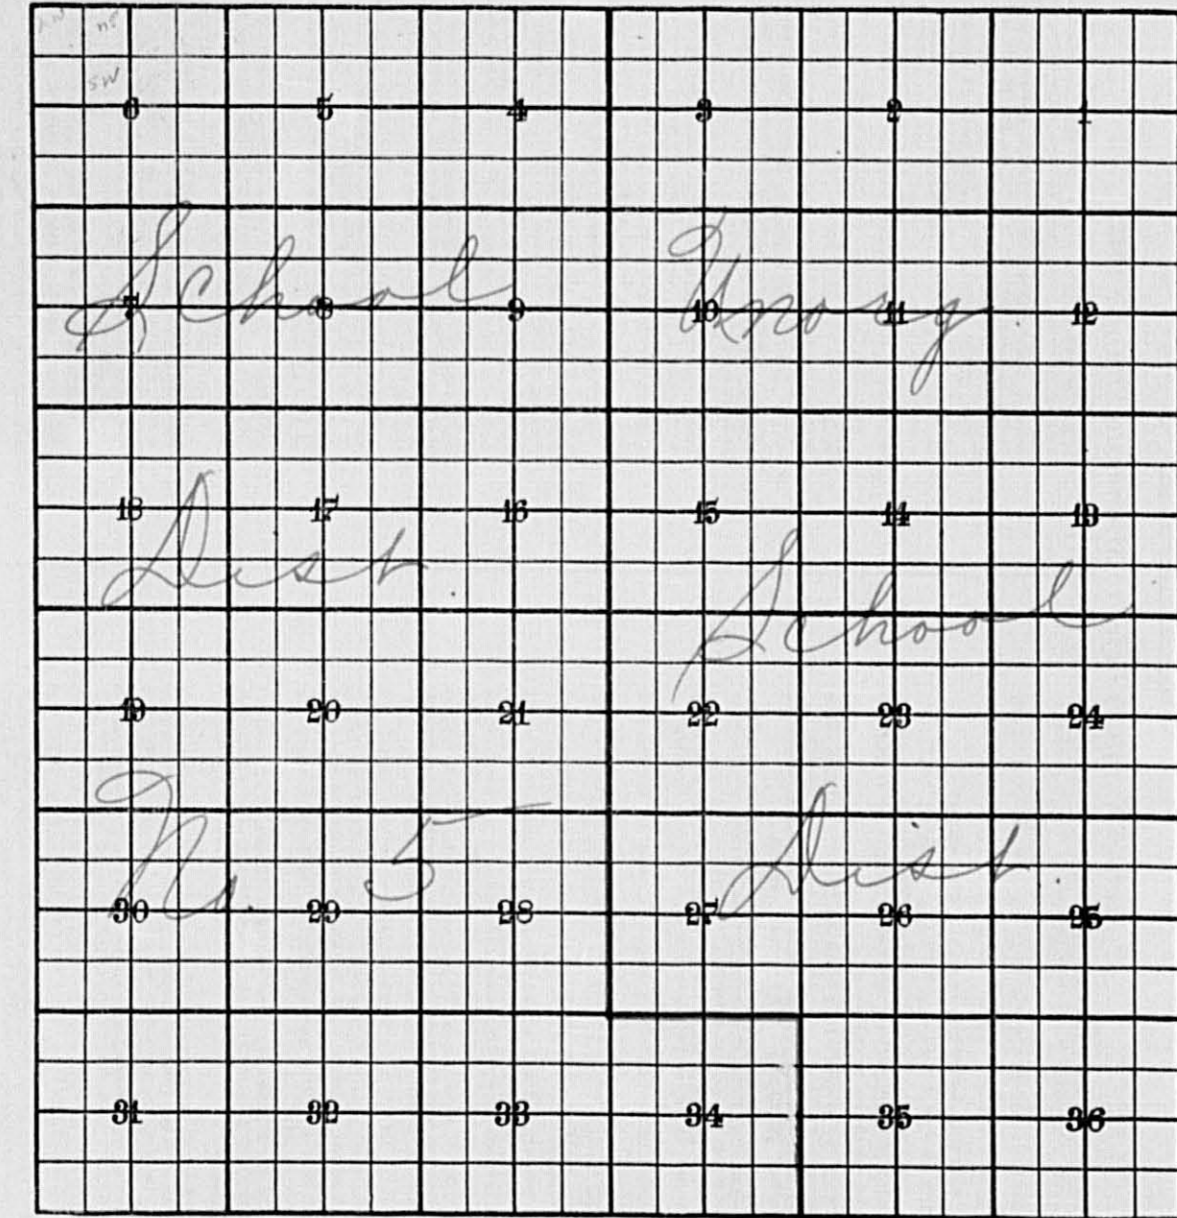 nw ne
sw
6 5 4 3 2 1
School Unorg.
7 8 9 10 11 12
18 17 16 15 14 13
Dist.
School
19 20 21 22 23 24
No. 5
Dist.
30 29 28 27 26 25
31 32 33 34 35 36